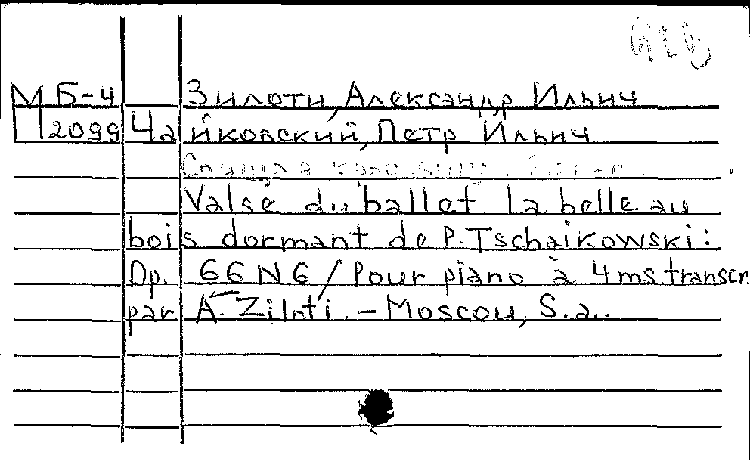 М Б-4 Зилоти, Александр Ильич
2099 Чайковский, Петр Ильич
Valse du ballet la belle au
bois dormant de P. Tschaikowski:
Op. 66 N 6 / Pour piano à 4 ms transcr.
par A. Ziloti. - Moscou, S.a.